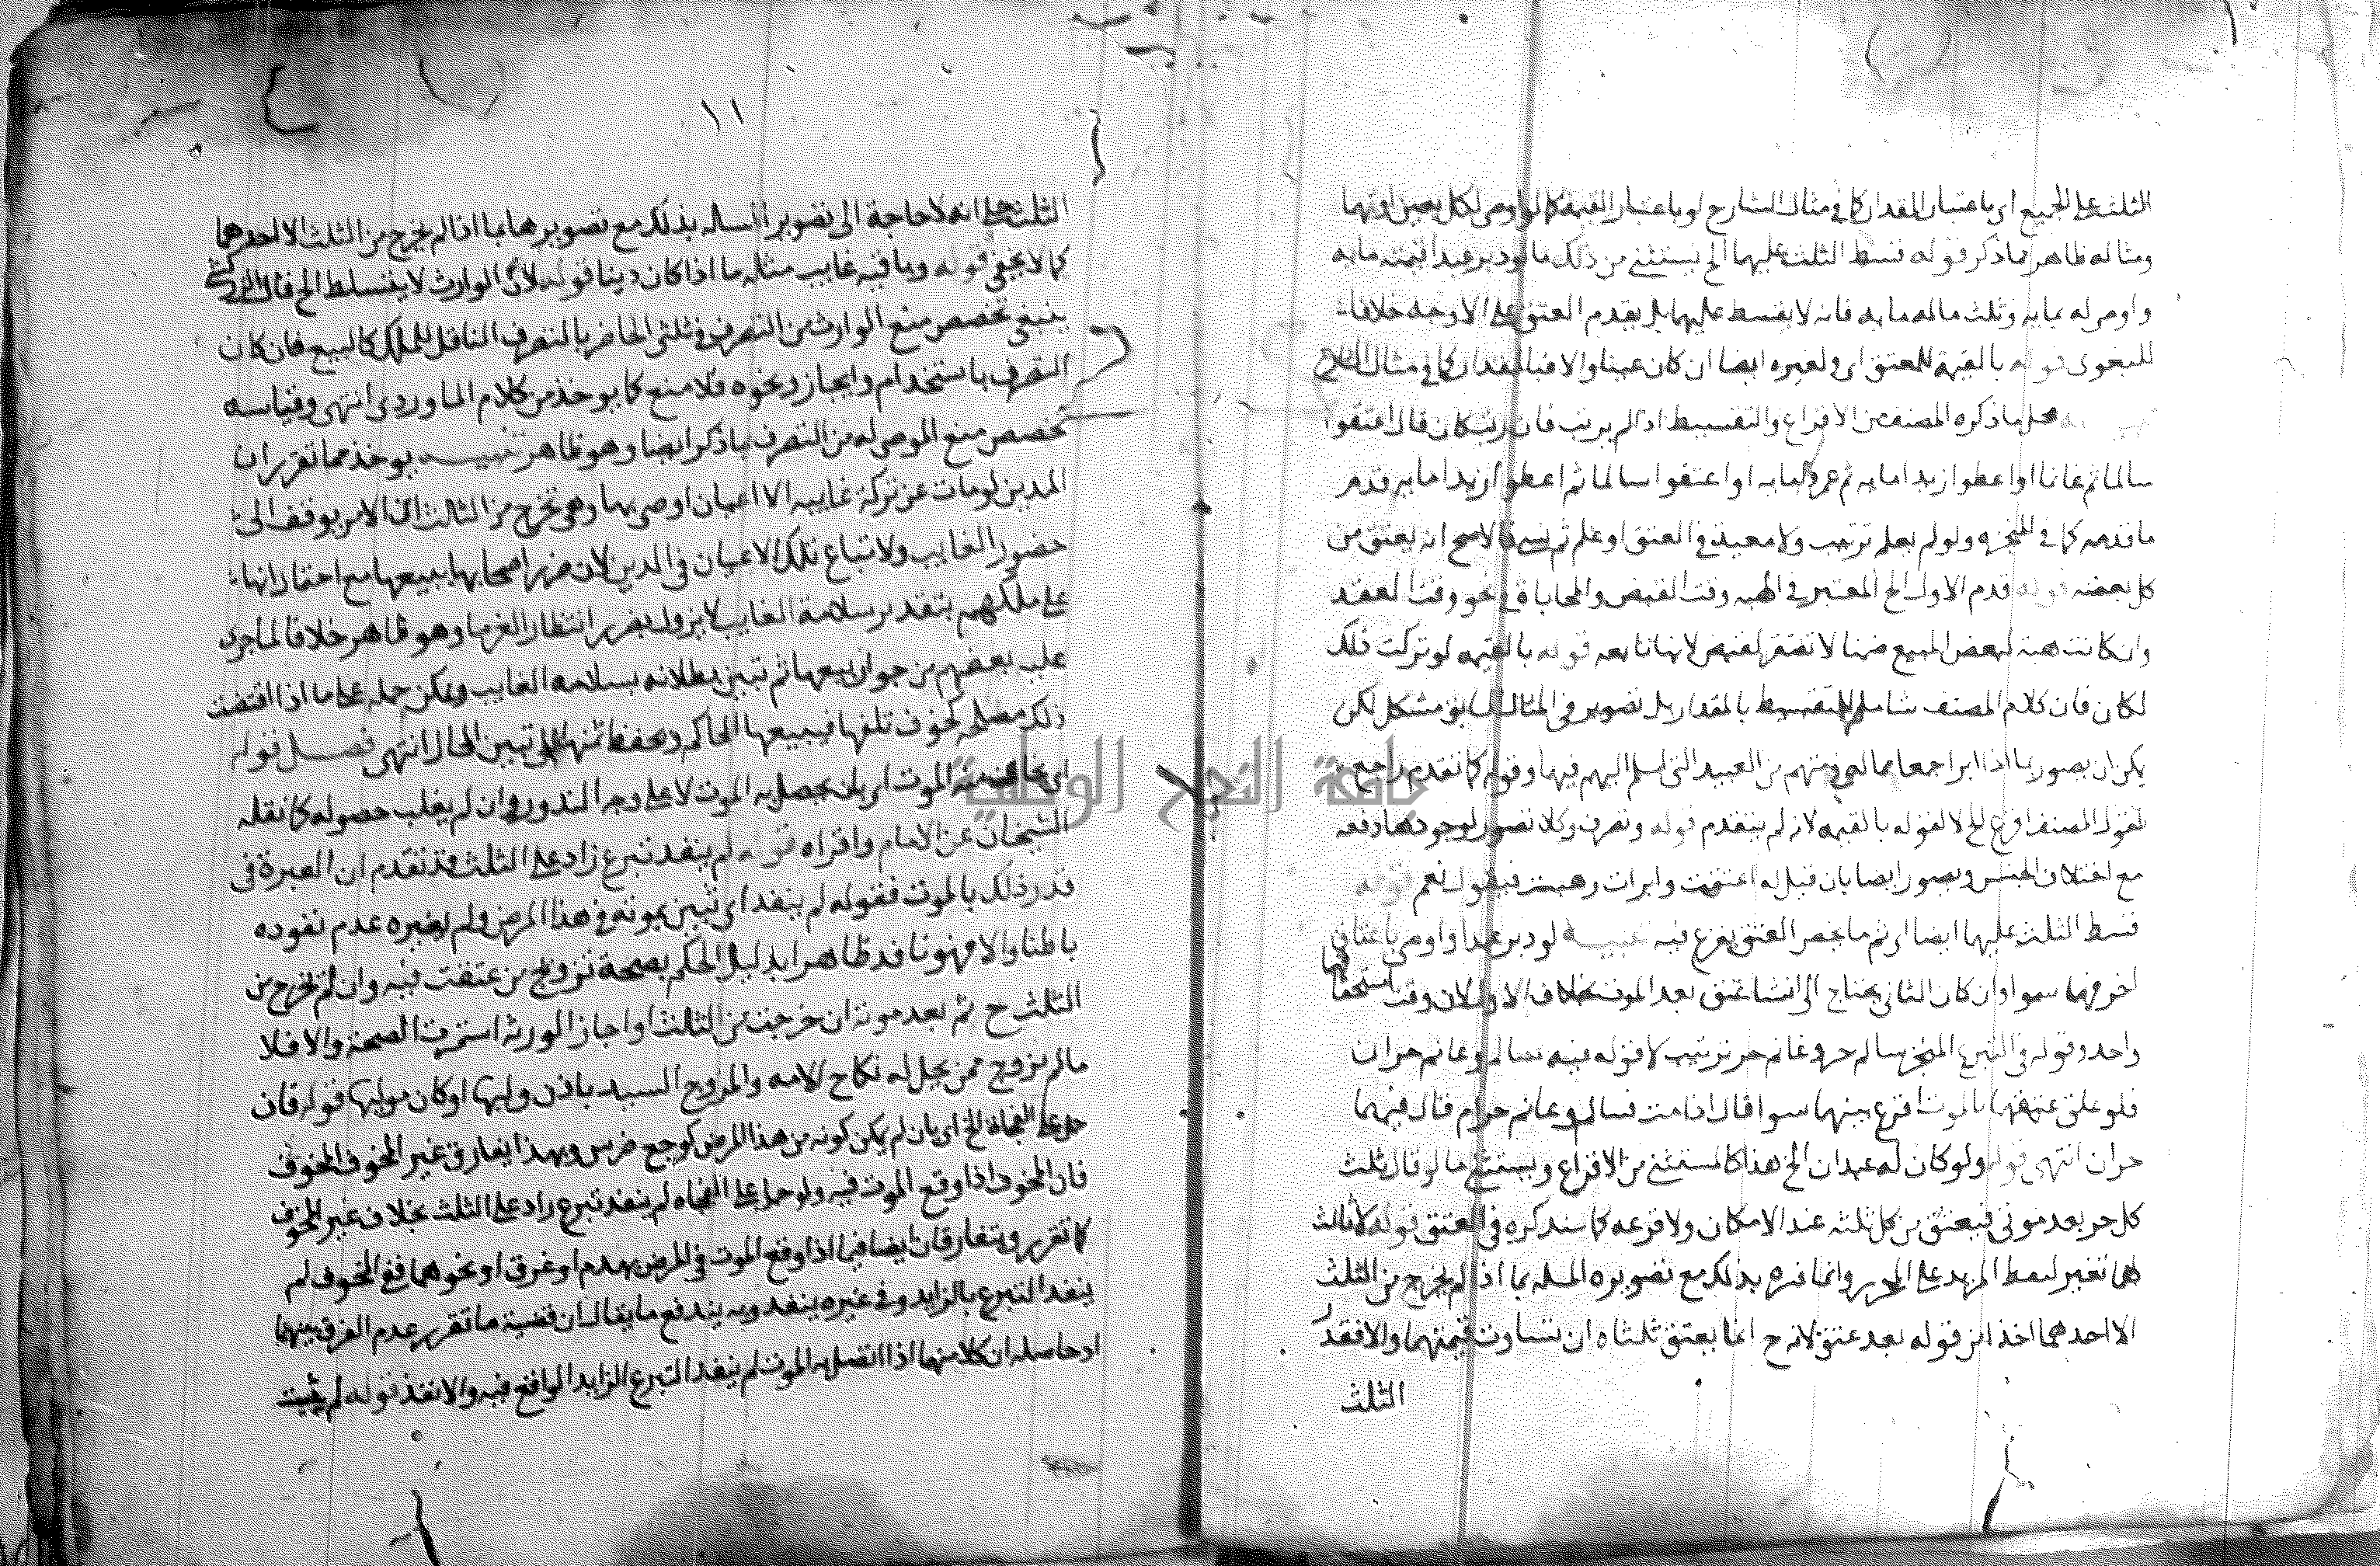 الثلث على الجميع اى باعتبار المقدار كما فى مثال الشارح او باعتبار القيمة كما لو اوصى لكل بعين اوتهما
ومثاله ظاهر مما ذكر قوله قسط الثلث عليهما الخ يستثنى من ذلك ما لو دبر عبدا قيمته مايه
واوصى له بمايه وثلث ماله مايه فانه لا يقسط عليهما بل يقدم العتق على الاوجه خلافا
للبغوى قوله بالقيمة للعتق اى ولغيره ايضا ان كان عينا والا فبالمقدار كما فى مثال الشارح
محل ما ذكره المصنف من الاقراع والتقسيط اذا لم يرتب فان رتب كان قال اعتقوا
سالما ثم غانما او اعطوا زيدا مايه ثم عمرو مايه او اعتقوا سالما ثم اعطوا زيدا مايه قدم
ما قدمه كما فى المنجزه ولو لم يعلم ترتيب ولا معية فى العتق او علم ثم نسى فالاصح انه يعتق من
كل بعضه قوله قدم الاول الخ المعتبر فى الهبه وقت القبض والمحاباة فى نحو وقت العقد
وان كانت هبة لبعض المبيع ضمنا لا تفتقر لقبض لانها تابعه قوله بالقيمه لو تركت ذلك
لكان فان كلام المصنف شامل للتقسيط بالمقدار بل تصويره فى المثال السابق مشكل لكن
يمكن ان يصور بما اذا ابرا جمعا مما له فى ذمتهم من العبيد التى اسلم اليهم فيها وقوله كما تقدم راجع
لقول المصنف اقرع الخ لا لقوله بالقيمه لانه لم يتقدم قوله وتصرف وكلا تصور لوجودها دفعه
مع اختلاف الجنس ويصور ايضا بان قيل له اعتقت وابرات وهبت فيقول نعم قوله
قسط الثلث عليها ايضا اى ثم ما يخص العتق يقرع فيه تنبيه لو دبر عبدا واوصى باعتاق
اخر فهما سوا وان كان الثانى يحتاج الى انشا عتق بعد الموت بخلاف الاول لان وقت استحقاقهما
واحد وقوله فى التبرع المنجز سالم حر وغانم حر ترتيب لا قوله فيه سالم وغانم حران
فلو علق عتقهما بالموت اقرع بينهما سوا قال اذا مت فسالم وغانم حرام قال فيهما
حران انتهى قوله ولو كان له عبدان الخ هذا كالمستثنى من الاقراع ويستثنى ما لو قال ثلث
كل حر بعد موتى فيعتق من كل ثلثه عند الامكان ولا قرعه كما سنذكره فى العتق قوله لا ثالث
هما تغيير لنمط المزيد على المحرر وانما فره بذلك مع تصويره المسله بما اذا لم يخرج من الثلث
الا احدهما اخذا من قوله بعد عتق لانه ح انما يعتق ثلثاه ان تساوت قيمتهما والا فقدر
الثلث
١١
الثلث على انه لا حاجة الى تصوير المساله بذلك مع تصويرها بما اذا لم يخرج من الثلث الا احدهما
كما لا يخفى قوله وباقيه غايب مثله ما اذا كان دينا قوله لان الوارث لا يتسلط الخ قال الزركشى
ينبغى تخصيص منع الوارث من التصرف فى ثلثى الحاضر بالتصرف الناقل للملك كالبيع فان كان
التصرف باستخدام وايجار ونحوه فلا منع كما يوخذ من كلام الماوردى انتهى وقياسه
تخصيص منع الموصى له من التصرف بما ذكر ايضا وهو ظاهر تنبيه يوخذ مما تقرر ان
المدين لو مات عن تركة غايبه الا اعيان اوصى بها وهى تخرج من الثالث ان الامر يوقف الى
حضور الغايب ولا تباع تلك الاعيان فى الدين لان ضرر اصحابها ببيعها مع احتمال انها
على ملكهم بتقدير سلامة الغايب لا يزول بضرر انتظار الغرما وهو ظاهر خلافا لما جرى
عليه بعضهم من جواز بيعها ثم تبين بطلانه بسلامه الغايب ويمكن حمله على ما اذا اقتضت
ذلك مصلحه كخوف تلفها فيبيعها الحاكم ويحفظ ثمنها الى تبين الحال انتهى فصل قوله
اى يخاف منه الموت اى بان يحصل به الموت لا على وجه الندور وان لم يغلب حصوله كما نقله
الشيخان عن الامام واقراه قوله لم ينفذ تبرع زاد على الثلث قد تقدم ان العبرة فى
قدر ذلك بالموت فقوله لم ينفذ اى تبين بموته فى هذا المرض ولم يغيره عدم نفوذه
باطنا والا فهو نافذ ظاهرا بدليل الحكم بصحة تزويج من عتقت فيه وان لم تخرج من
الثلث ح ثم بعد موته ان خرجت من الثلث او اجاز الورثه استمرت الصحة والا فلا
ما لم يزوج ممن يحل له نكاح الامه والمزوج السيد باذن وليها او كان موليها قوله فان
حمل على الفجاة الخ اى بان لم يمكن كونه من هذا المرض كوجع ضرس وبهذا يفارق غير المخوف المخوف
فان المخوف اذا وقع الموت فيه ولو حمل على الفجاه لم ينفذ تبرع زاد على الثلث بخلاف غير المخوف
كما تقرر ويتفارقان ايضا فيما اذا وقع الموت فى المرض بهدم او غرق او نحوهما ففى المخوف لم
ينفذ التبرع بالزايد وفى غيره ينفذ وبه يندفع ما يقال ان قضية ما تقرر عدم الفرق بينهما
اد حاصله ان كلا منهما اذا اتصل به الموت لم ينفذ التبرع الزايد الواقع فيه والا نفذ قوله لم يثبت
جامعة النجاح الوطنية